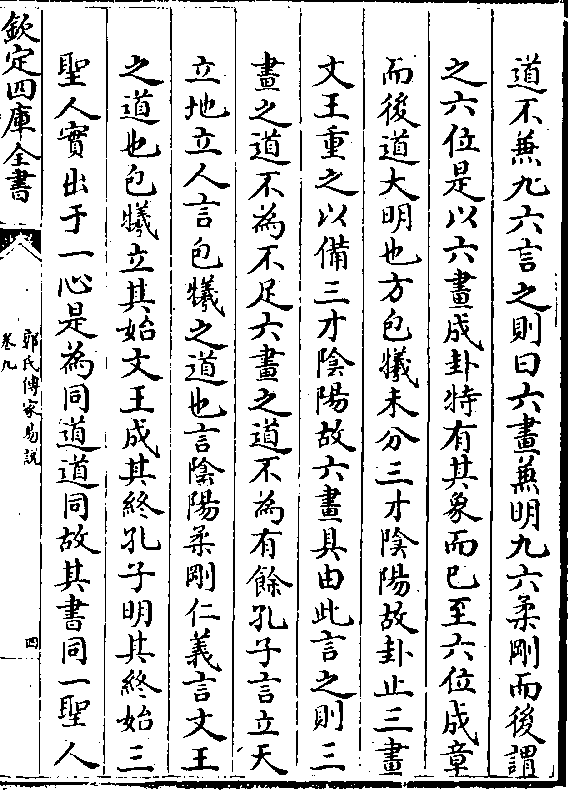 道不兼九六言之則曰六畫兼明九六柔剛而後謂
之六位是以六畫成卦特有其象而已至六位成章
而後道大明也方包犧未分三才陰陽故卦止三畫
文王重之以備三才陰陽故六畫具由此言之則三
畫之道不為不足六畫之道不為有餘孔子言立天
立地立人言包犧之道也言陰陽柔剛仁義言文王
之道也包犧立其始文王成其終孔子明其終始三
聖人實出于一心是為同道道同故其書同一聖人
欽定四庫全書
郭氏傳家易說
卷九
四